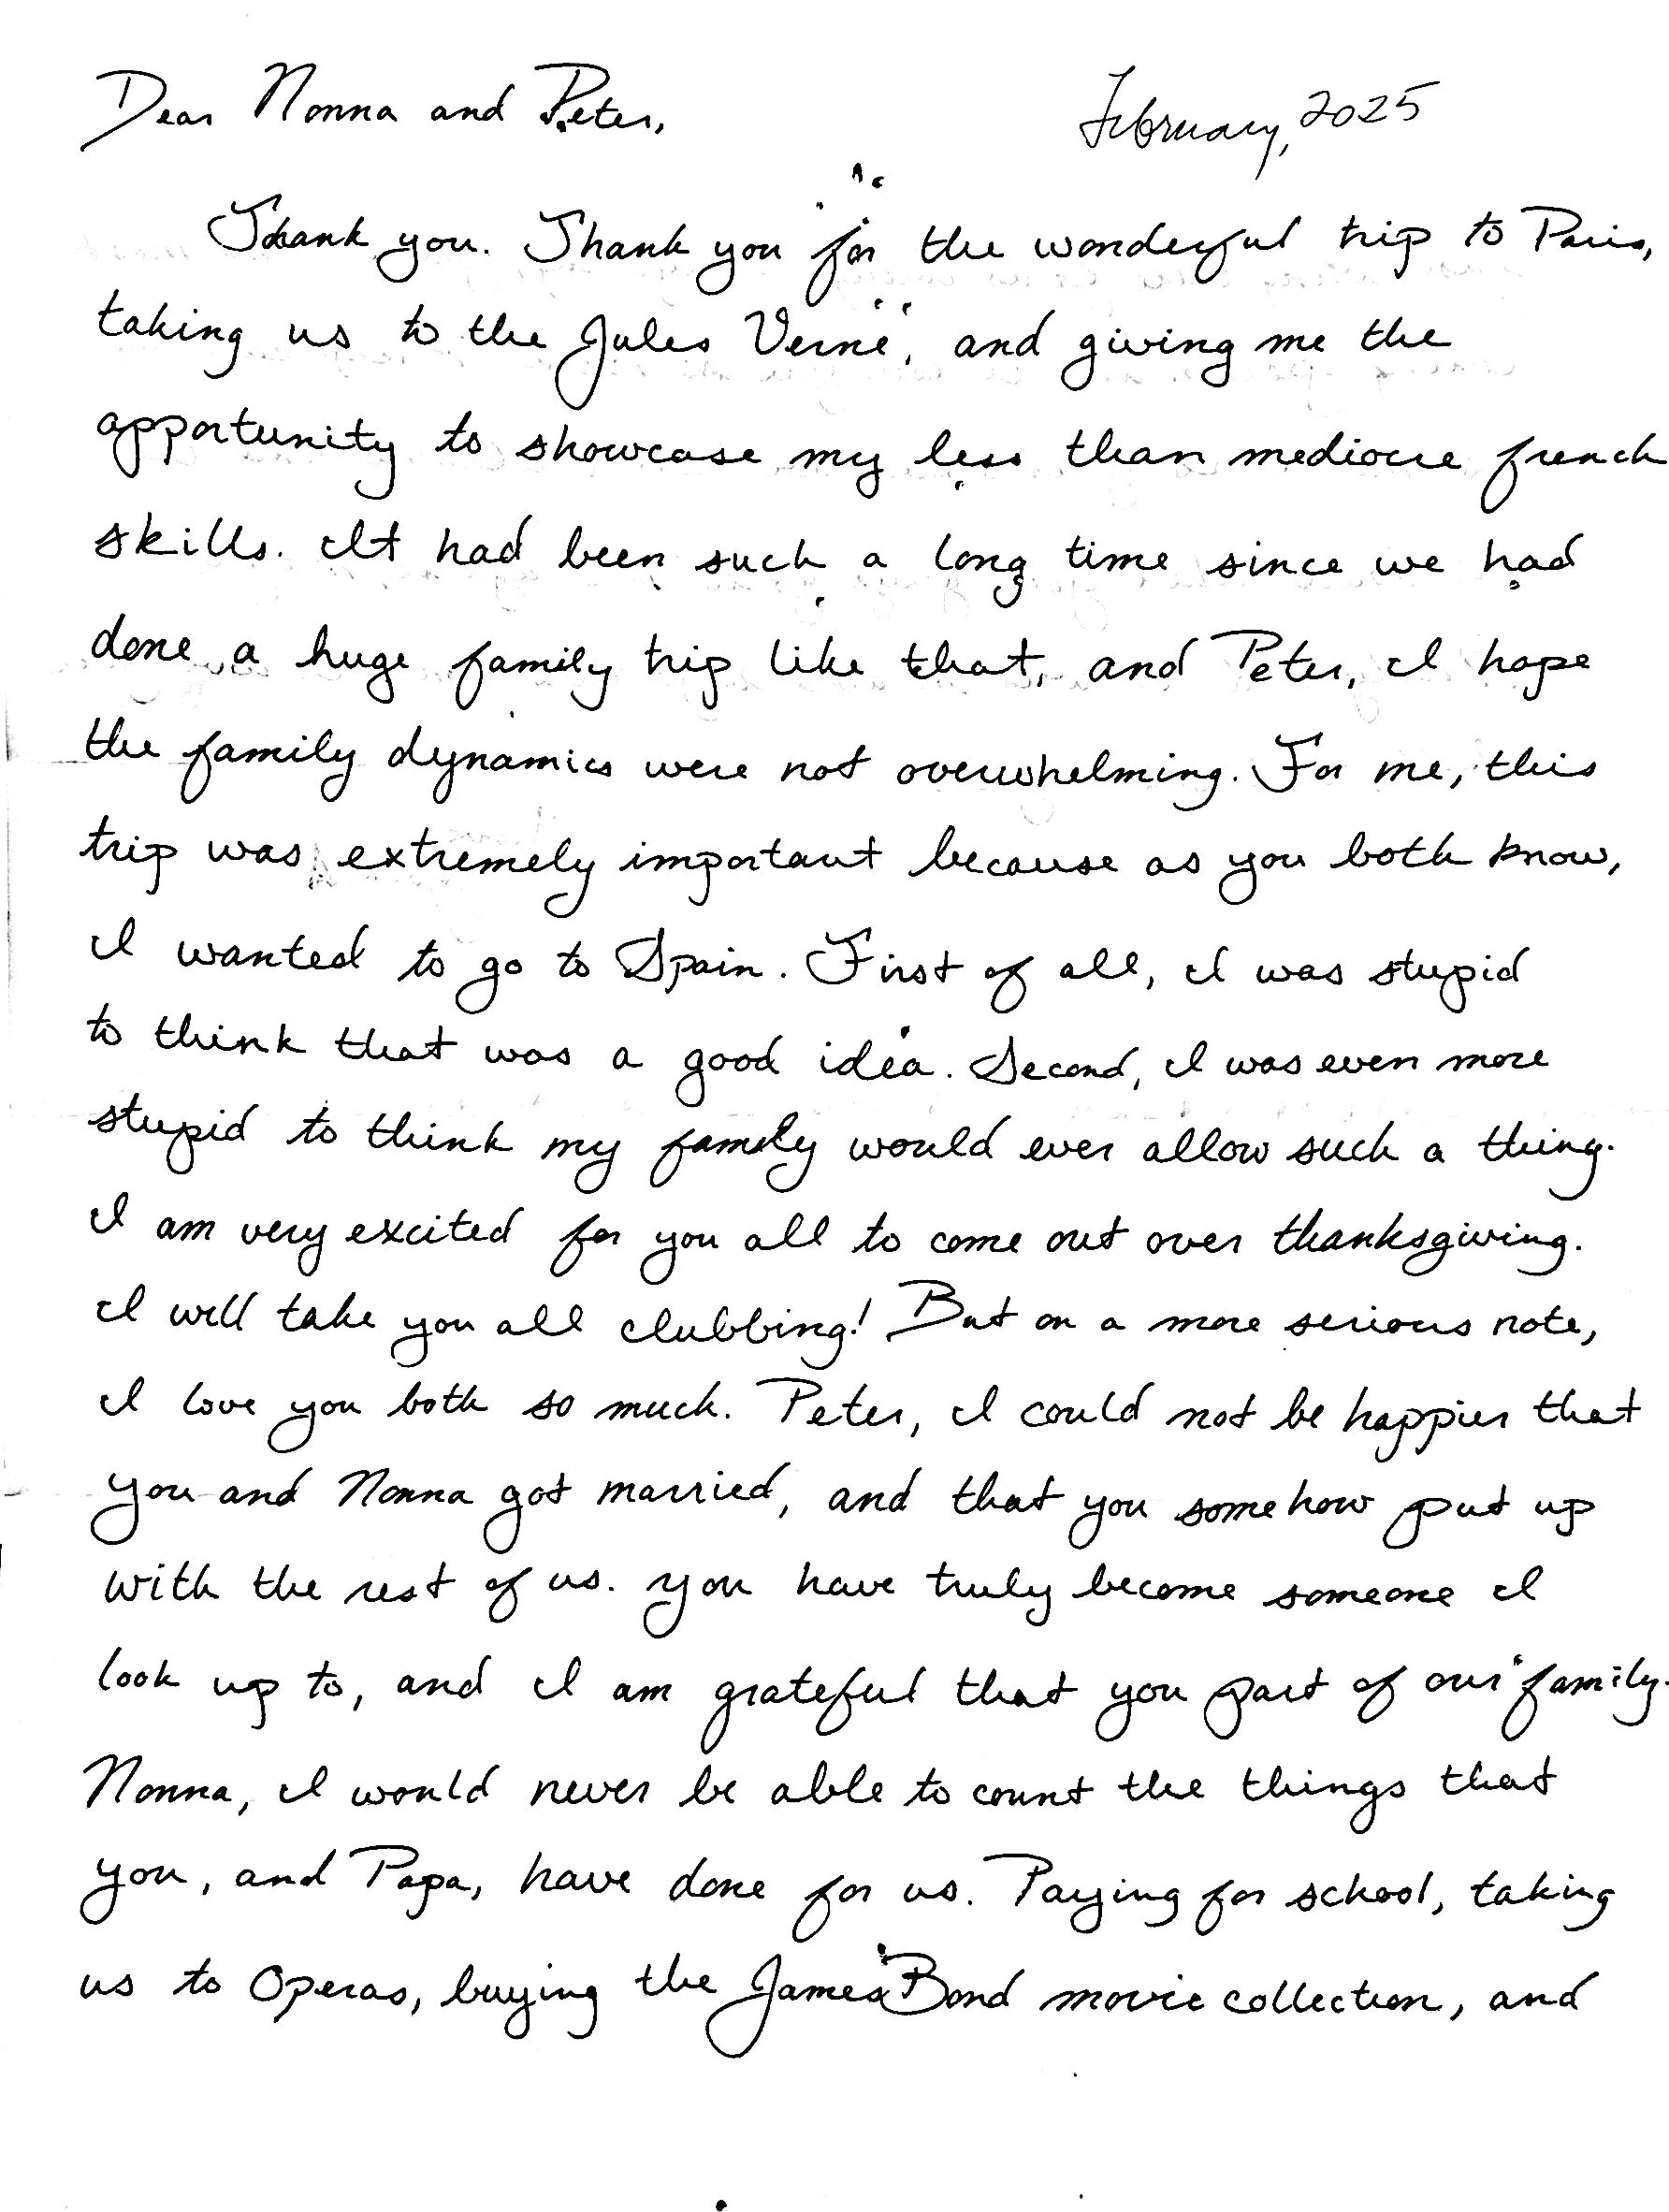 Dear Nonna and Peter,
February, 2025
Thank you. Thank you for the wonderful trip to Paris,
taking us to the Jules Verne, and giving me the
opportunity to showcase my less than mediocre french
skills. It had been such a long time since we had
done a huge family trip like that, and Peter, I hope
the family dynamics were not overwhelming. For me, this
trip was extremely important because as you both know,
I wanted to go to Spain. First of all, I was stupid
to think that was a good idea. Second, I was even more
stupid to think my family would ever allow such a thing.
I am very excited for you all to come out over thanksgiving.
I will take you all clubbing! But on a more serious note,
I love you both so much. Peter, I could not be happier that
you and Nonna got married, and that you somehow put up
with the rest of us. you have truly become someone I
look up to, and I am grateful that you part of our family.
Nonna, I would never be able to count the things that
you, and Papa, have done for us. Paying for school, taking
us to Operas, buying the James Bond movie collection, and